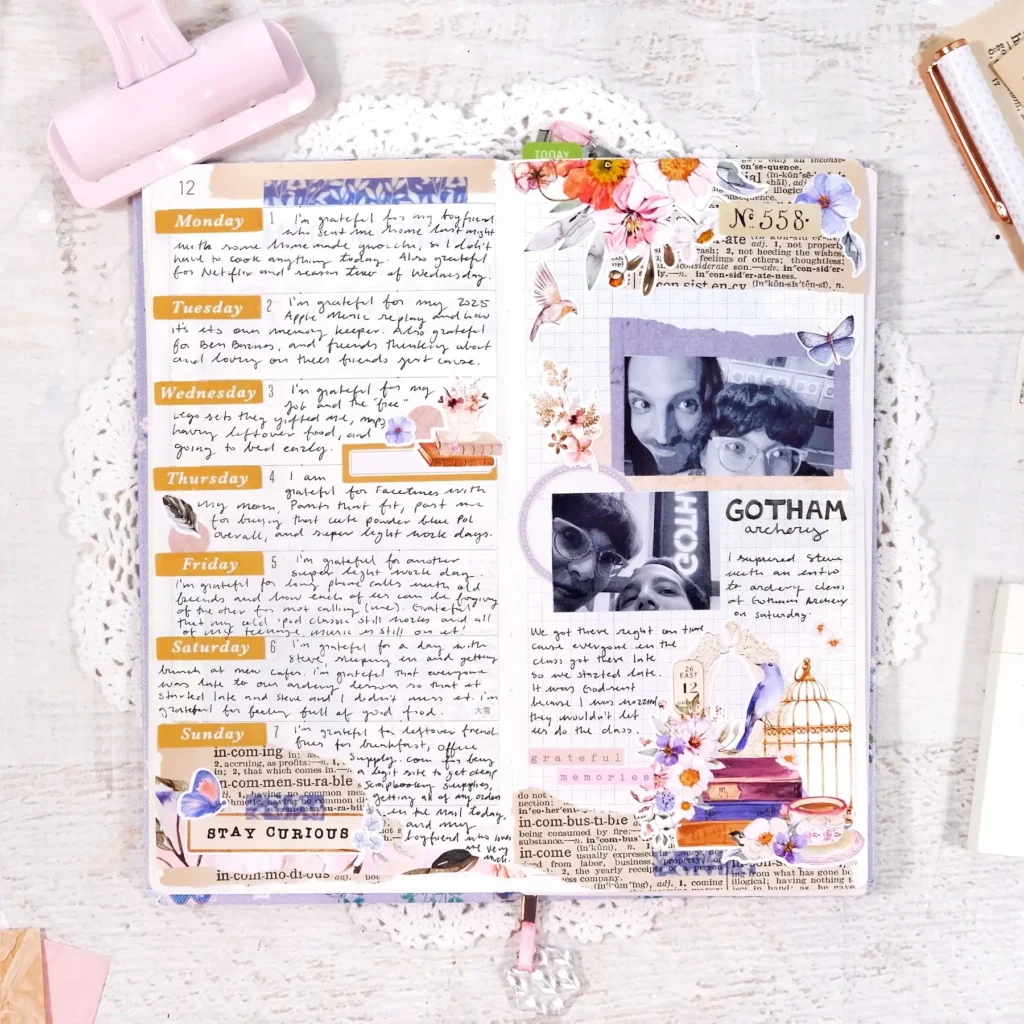 12
Monday 1 I'm grateful for my boyfriend
who sent me home last night
with some homemade gnocchi, so I didn't
have to cook anything today. Also grateful
for Netflix and season two of Wednesday.
Tuesday 2 I'm grateful for my 2025
Apple Music replay and how
it's its own memory keeper. Also grateful
for Ben Barnes, and friends thinking about
and loving on their friends just cause.
Wednesday 3 I'm grateful for my
job and the "free"
Lego sets they gifted me, naps,
having leftover food, and
going to bed early.
Thursday 4 I am
grateful for Facetimes with
my mom, pants that fit, past me
for buying that cute powder blue Pol
overall, and super light work days.
Friday 5 I'm grateful for another
super light work day.
I'm grateful for long phone calls with old
friends and how each of us can be forgiving
of the other for not calling (me). Grateful
that my old ipod classic still works and all
of my teenage music is still on it!
Saturday 6 I'm grateful for a day with
Steve, sleeping in and getting
brunch at new cafes. I'm grateful that everyone
was late to our archery lesson so that it
started late and Steve and I didn't miss it. I'm
grateful for feeling full of good food.
大雪
Sunday 7 I'm grateful to leftover friend
fries for breakfast, office
supply.com for being
a legit site to get cheap
scrapbooking supplies,
getting all of my orders
in the mail today,
and my
boyfriend who loves
me very
much.
in·com·ing
2, accruing, as profits:—n. 1,
in; 2, that which comes in.—
in·com·men·su·ra·ble
1, having no common
STAY CURIOUS
in·com·mo·di·ous adj. not
TODAY
on'se·quence.
Nº 558·
adj. 1, not properly
rash; 2, not heeding the wishes,
feelings of others; thoughtless;
inconsiderate son.—adv. in"con·sid'er·
ate·ly.—n. in"con·sid'er·ate·ness.
in con sist en·cy
GOTHAM
GOTHAM
archery
I suprised Steve
with an intro
to archery class
at Gotham Archery
on Saturday.
We got there right on time
cause everyone in the
class got there late
so we started late.
It was Godsent
because I was worried
they wouldn't let
us do the class.
26
EAST
12
grateful
memories
do not
nection:
in·com·bus·ti·ble
being consumed by fire:—
substance.—n.
in·come usually expressed
ed from labor, business, property, or
2, the yearly receipts of a person
ness company.
adj. 1, coming
ing from what has gone
illogical; having nothing